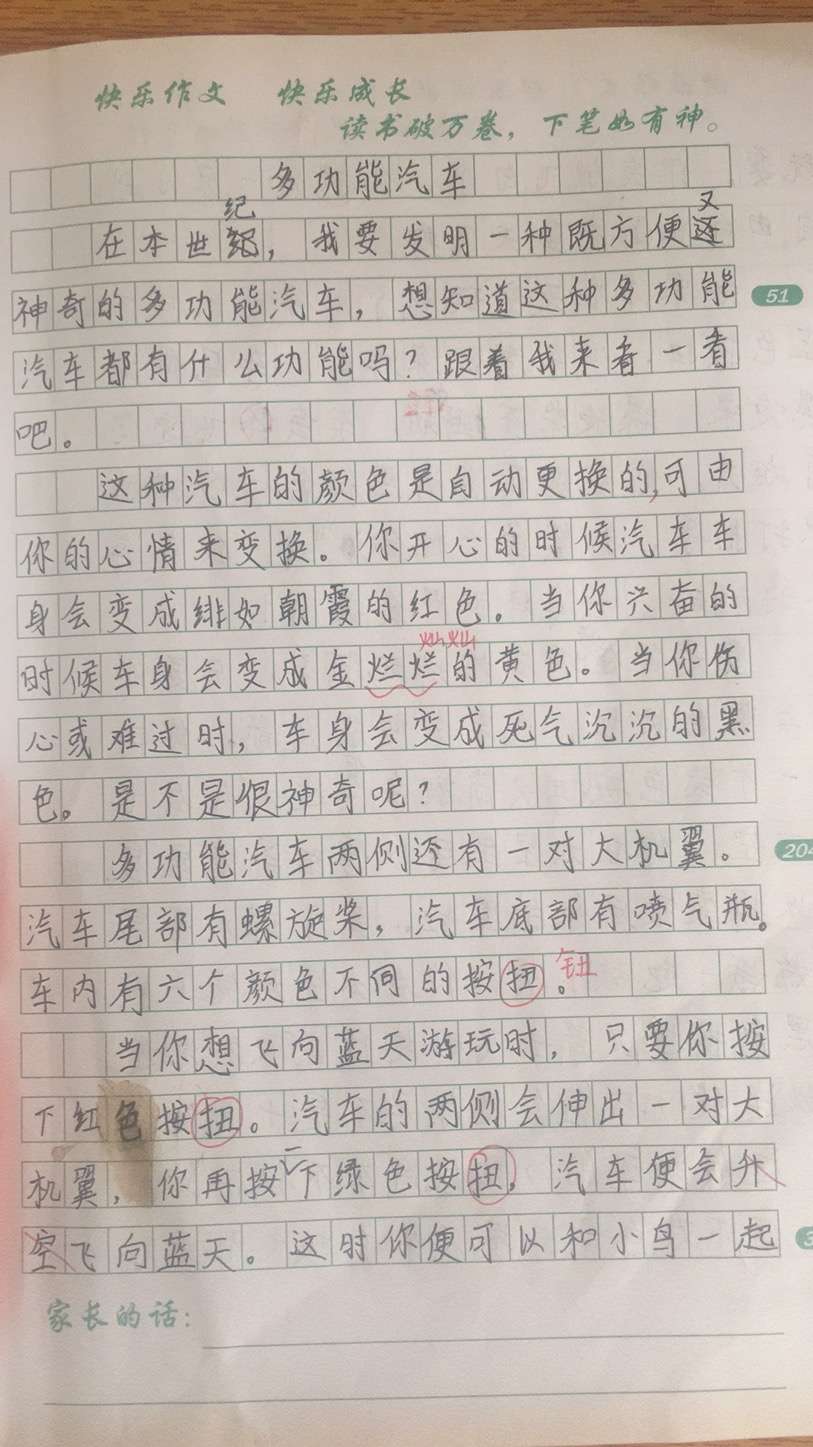 快乐作文 快乐成长
读书破万卷，下笔如有神。
多功能汽车
纪 又
在本世，我要发明一种既方便还
神奇的多功能汽车，想知道这种多功能
51
汽车都有什么功能吗？跟着我来看一看
吧。
这种汽车的颜色是自动更换的，可由
你的心情来变换。你开心的时候汽车车
身会变成绯如朝霞的红色。当你兴奋的
灿灿
时候车身会变成金烂烂的黄色。当你伤
心或难过时，车身会变成死气沉沉的黑
色。是不是很神奇呢？
多功能汽车两侧还有一对大机翼。
204
汽车尾部有螺旋桨，汽车底部有喷气瓶。
车内有六个颜色不同的按扭。钮
当你想飞向蓝天游玩时，只要你按
下红色按扭。汽车的两侧会伸出一对大
机翼，你再按一下绿色按扭，汽车便会升
空飞向蓝天。这时你便可以和小鸟一起
3
家长的话：